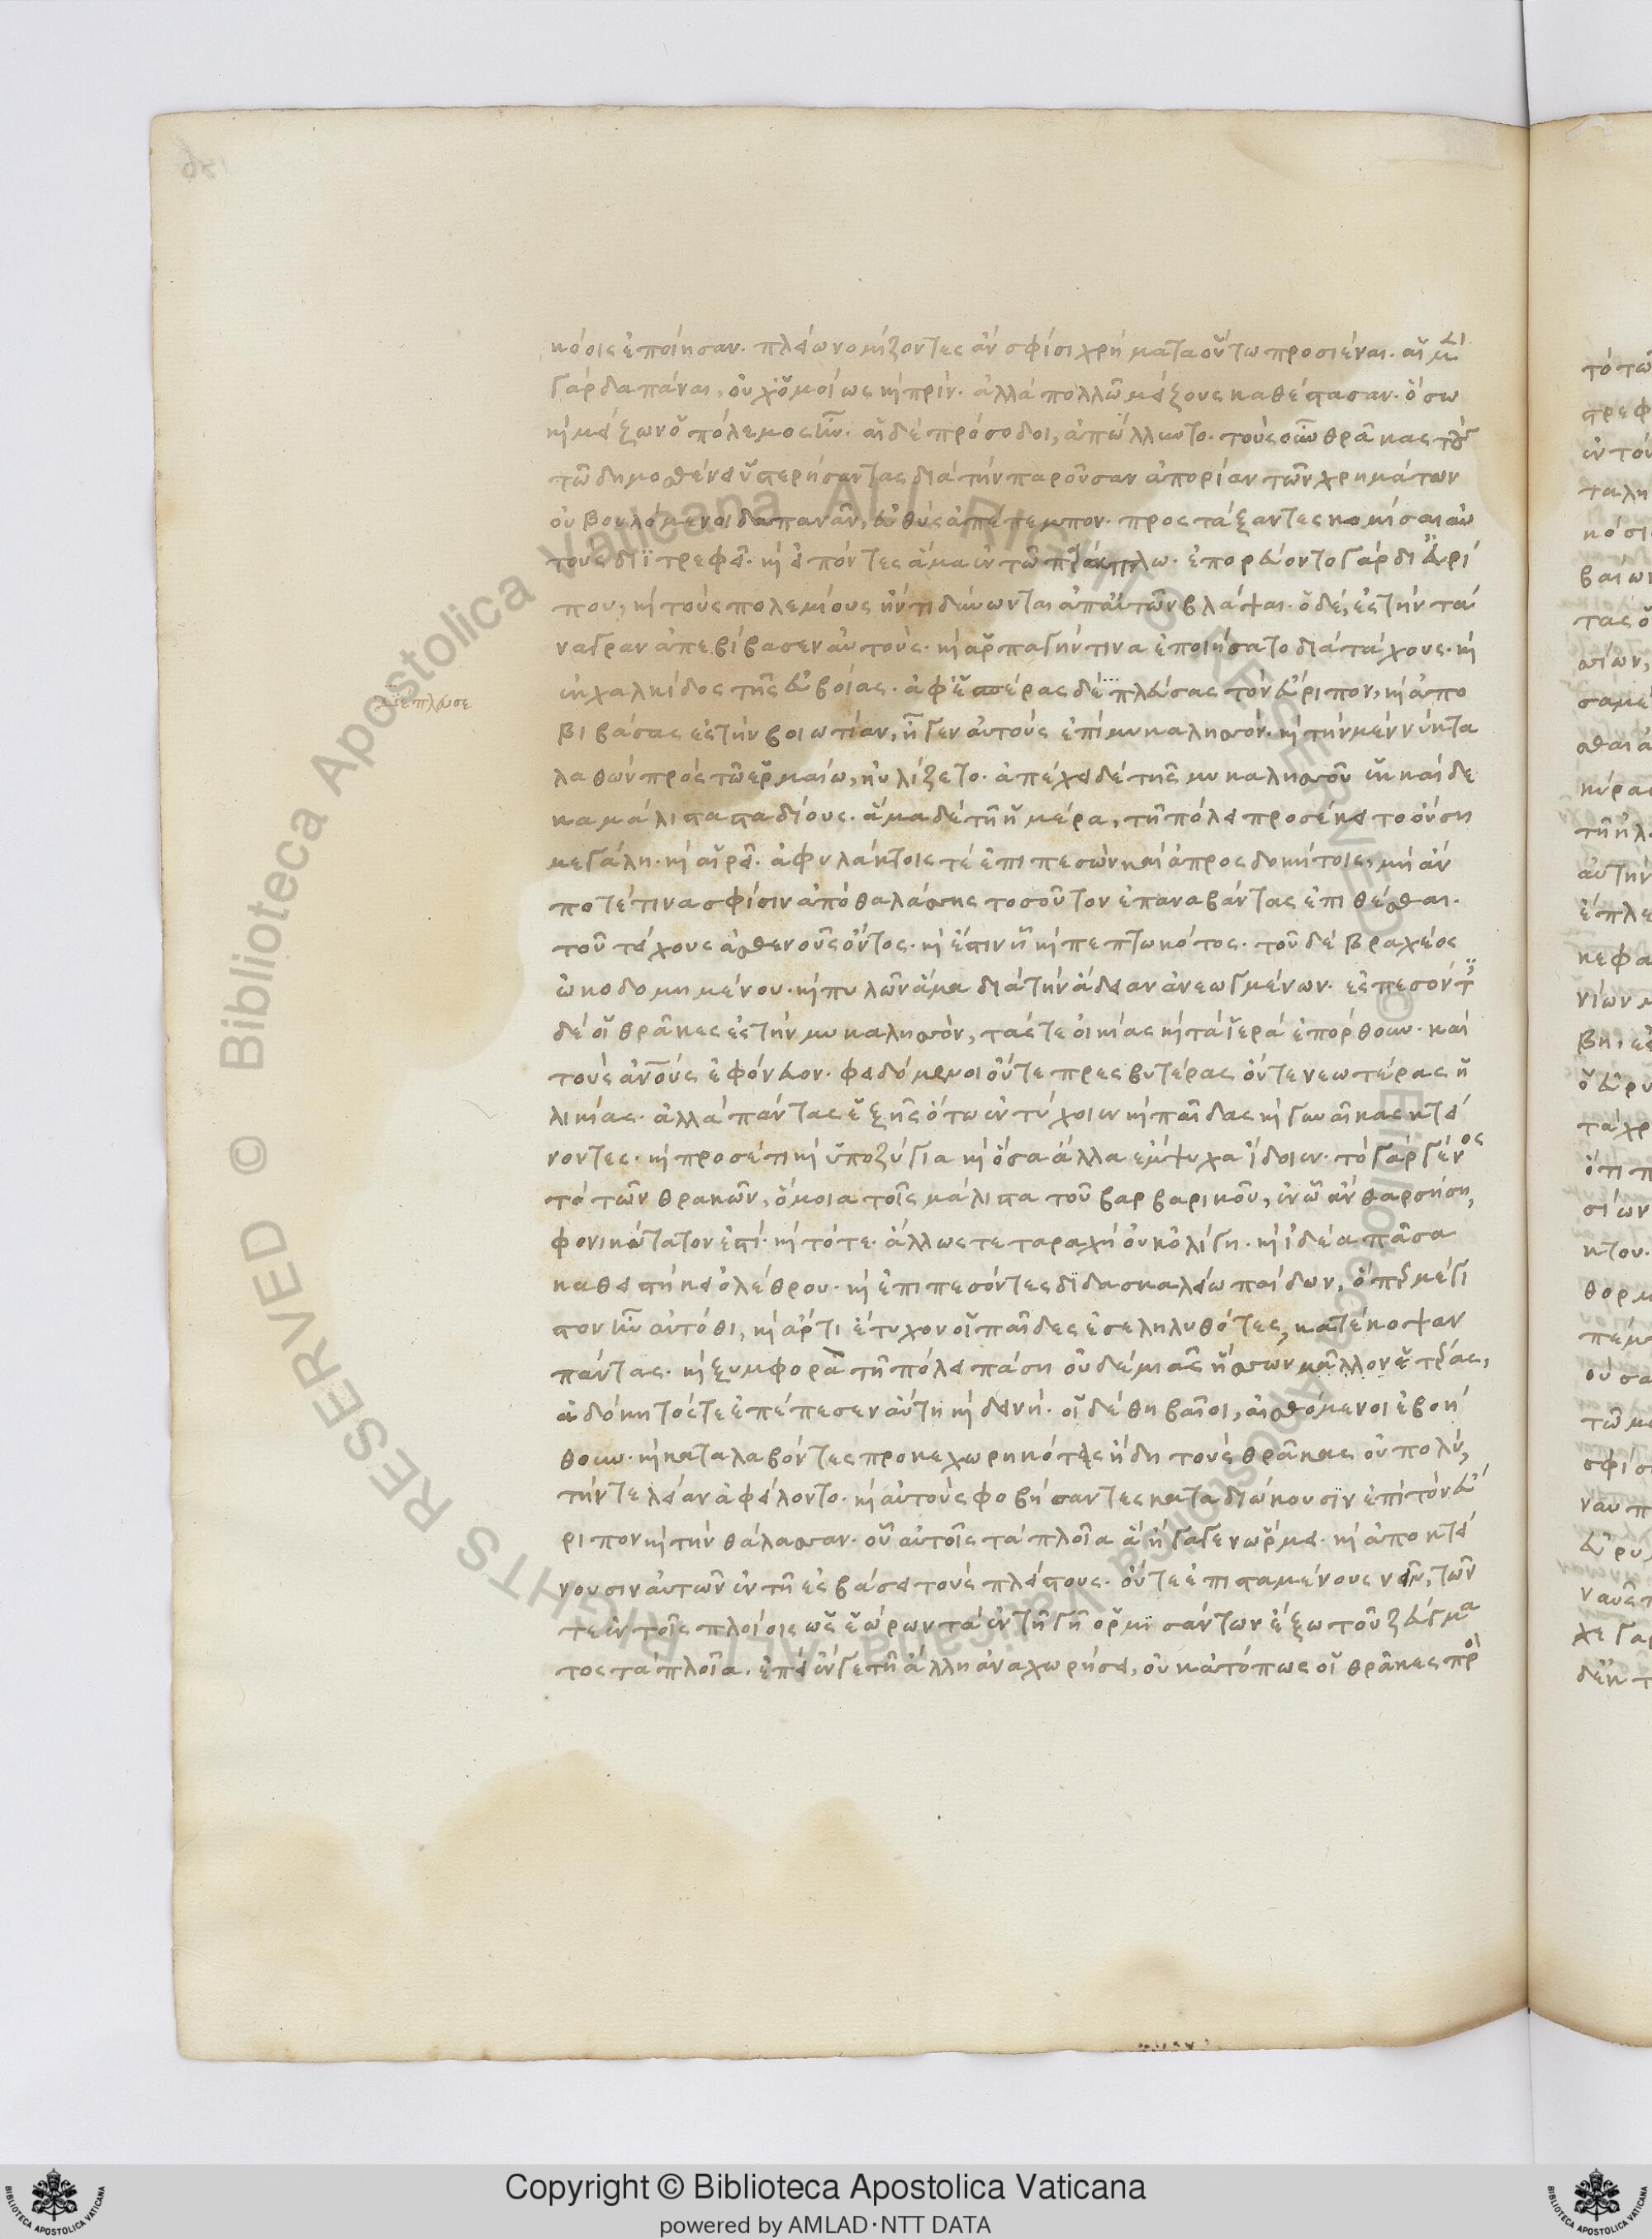 κόοις ἐποίησαν. πλείω νομίζοντες ἂν σφίσι χρήματα οὕτω προσιέναι. αἱ μὲν
γὰρ δαπάναι, οὐχ ὁμοίως κὶ πρίν. ἀλλὰ πολλῶ μείζους καθέστασαν. ὅσω
κὶ μείζων ὁ πόλεμος ἦν. αἱ δὲ πρόσοδοι, ἀπώλλυντο. τοὺς οὖν θρᾶκας τοὺς
τῶ δημοσθένει ὑστερήσαντας διὰ τὴν παροῦσαν ἀπορίαν τῶν χρημάτων
οὐ βουλόμενοι δαπανᾶν, εὐθὺς ἀπέπεμπον. προστάξαντες κομίσαι αὐ
τοὺς διϊτρεφεῖ. κὶ εἰπόντες ἅμα ἐν τῶ παράπλω. ἐπορεύοντο γὰρ δι εὐρί
που, κὶ τοὺς πολεμίους ἤν τι δύνωνται ἀπ αὐτῶν βλάψαι. ὁ δὲ, ἐς τὴν τά
ναγραν ἀπεβίβασεν αὐτούς. κὶ ἁρπαγήν τινα ἐποιήσατο διὰ τάχους. κὶ
ἐκ χαλκίδος τῆς εὐβοίας. ἀφ ἑσπέρας δὲ πλεύσας τὸν εὔριπον, κὶ ἀπο
διέπλευσε
βιβάσας ἐς τὴν βοιωτίαν, ἦγεν αὐτοὺς ἐπὶ μυκαλησσόν. κὶ τὴν μὲν νύκτα
λαθὼν πρὸς τῶ ἑρμαίω, ηὐλίζετο. ἀπέχει δὲ τῆς μυκαλησσοῦ ἑκκαίδε
κα μάλιστα σταδίους. ἅμα δὲ τῆ ἡμέρα, τῆ πόλει προσέκειτο οὔση
μεγάλη. κὶ αἱρεῖ. ἀφυλάκτοις τὲ ἐπιπεσὼν καὶ ἀπροσδοκήτοις, μὴ ἄν
ποτέ τινα σφίσιν ἀπὸ θαλάσσης τοσοῦτον ἐπαναβάντας ἐπιθέσθαι.
τοῦ τείχους ἀσθενοῦς ὄντος. κὶ ἔστιν ἧ κὶ πεπτωκότος. τοῦ δὲ βραχέος
ὠκοδομημένου. κὶ πυλῶν ἅμα διὰ τὴν ἄδειαν ἀνεωγμένων. ἐσπεσόντες
δὲ οἱ θρᾶκες ἐς τὴν μυκαλησσὸν, τάς τε οἰκίας κὶ τὰ ἱερὰ ἐπόρθουν. καὶ
τοὺς ἀνους ἐφόνευον. φειδόμενοι οὔτε πρεσβυτέρας οὔτε νεωτέρας ἡ
λικίας. ἀλλὰ πάντας ἑξῆς ὅτω ἐντύχοιεν κὶ παῖδας κὶ γυναῖκας κτεί
νοντες. κὶ προσέτι κὶ ὑποζύγια κὶ ὅσα ἄλλα ἔμψυχα ἴδοιεν. τὸ γὰρ γένος
τὸ τῶν θρακῶν, ὅμοια τοῖς μάλιστα τοῦ βαρβαρικοῦ, ἐν ὧ ἂν θαρσήση,
φονικώτατον ἐστί. κὶ τότε. ἄλλως τε ταραχὴ οὐκ ὀλίγη. κὶ ἰδέα πᾶσα
καθειστήκει ὀλέθρου. κὶ ἐπιπεσόντες διδασκαλείω παίδων, ὅπερ μέγι
στον ἦν αὐτόθι, κὶ ἄρτι ἔτυχον οἱ παῖδες ἐσεληλυθότες, κατέκοψαν
πάντας. κὶ ξυμφορὰ τῆ πόλει πάση οὐδεμιᾶς ἥσσων μᾶλλον ἑτέρας,
ἀδόκητός τε ἐπέπεσεν αὕτη κὶ δεινή. οἱ δὲ θηβαῖοι, αἰσθόμενοι ἐβοή
θουν. κὶ καταλαβόντες προκεχωρηκότας ἤδη τοὺς θρᾶκας οὐ πολύ,
τήν τε λείαν ἀφείλοντο. κὶ αὐτοὺς φοβήσαντες καταδιώκουσιν ἐπὶ τὸν εὔ
ριπον κὶ τὴν θάλασσαν. οὗ αὐτοῖς τὰ πλοῖα ἃ ἤγαγεν ὥρμει. κὶ ἀποκτεί
νουσιν αὐτῶν ἐν τῆ ἐσβάσει τοὺς πλείστους. οὔτε ἐπισταμένους νεῖν, τῶν
τε ἐν τοῖς πλοίοις ὡς ἑώρων τὰ ἐν τῆ γῆ ὁρμισάντων ἔξω τοῦ ζεύγμα
τος τὰ πλοῖα. ἐπεὶ ἔν γε τῆ ἄλλη ἀναχωρήσει, οὐκ ἀτόπως οἱ θρᾶκες πρὸς
Copyright © Biblioteca Apostolica Vaticana
powered by AMLAD·NTT DATA